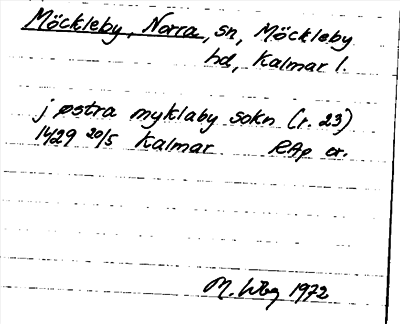 Möckleby, Norra, sn, Möckleby
hd, Kalmar l.
j østra myklaby sokn (r. 23)
1429 20/5 Kalmar RAp or.
M. Wbg 1972